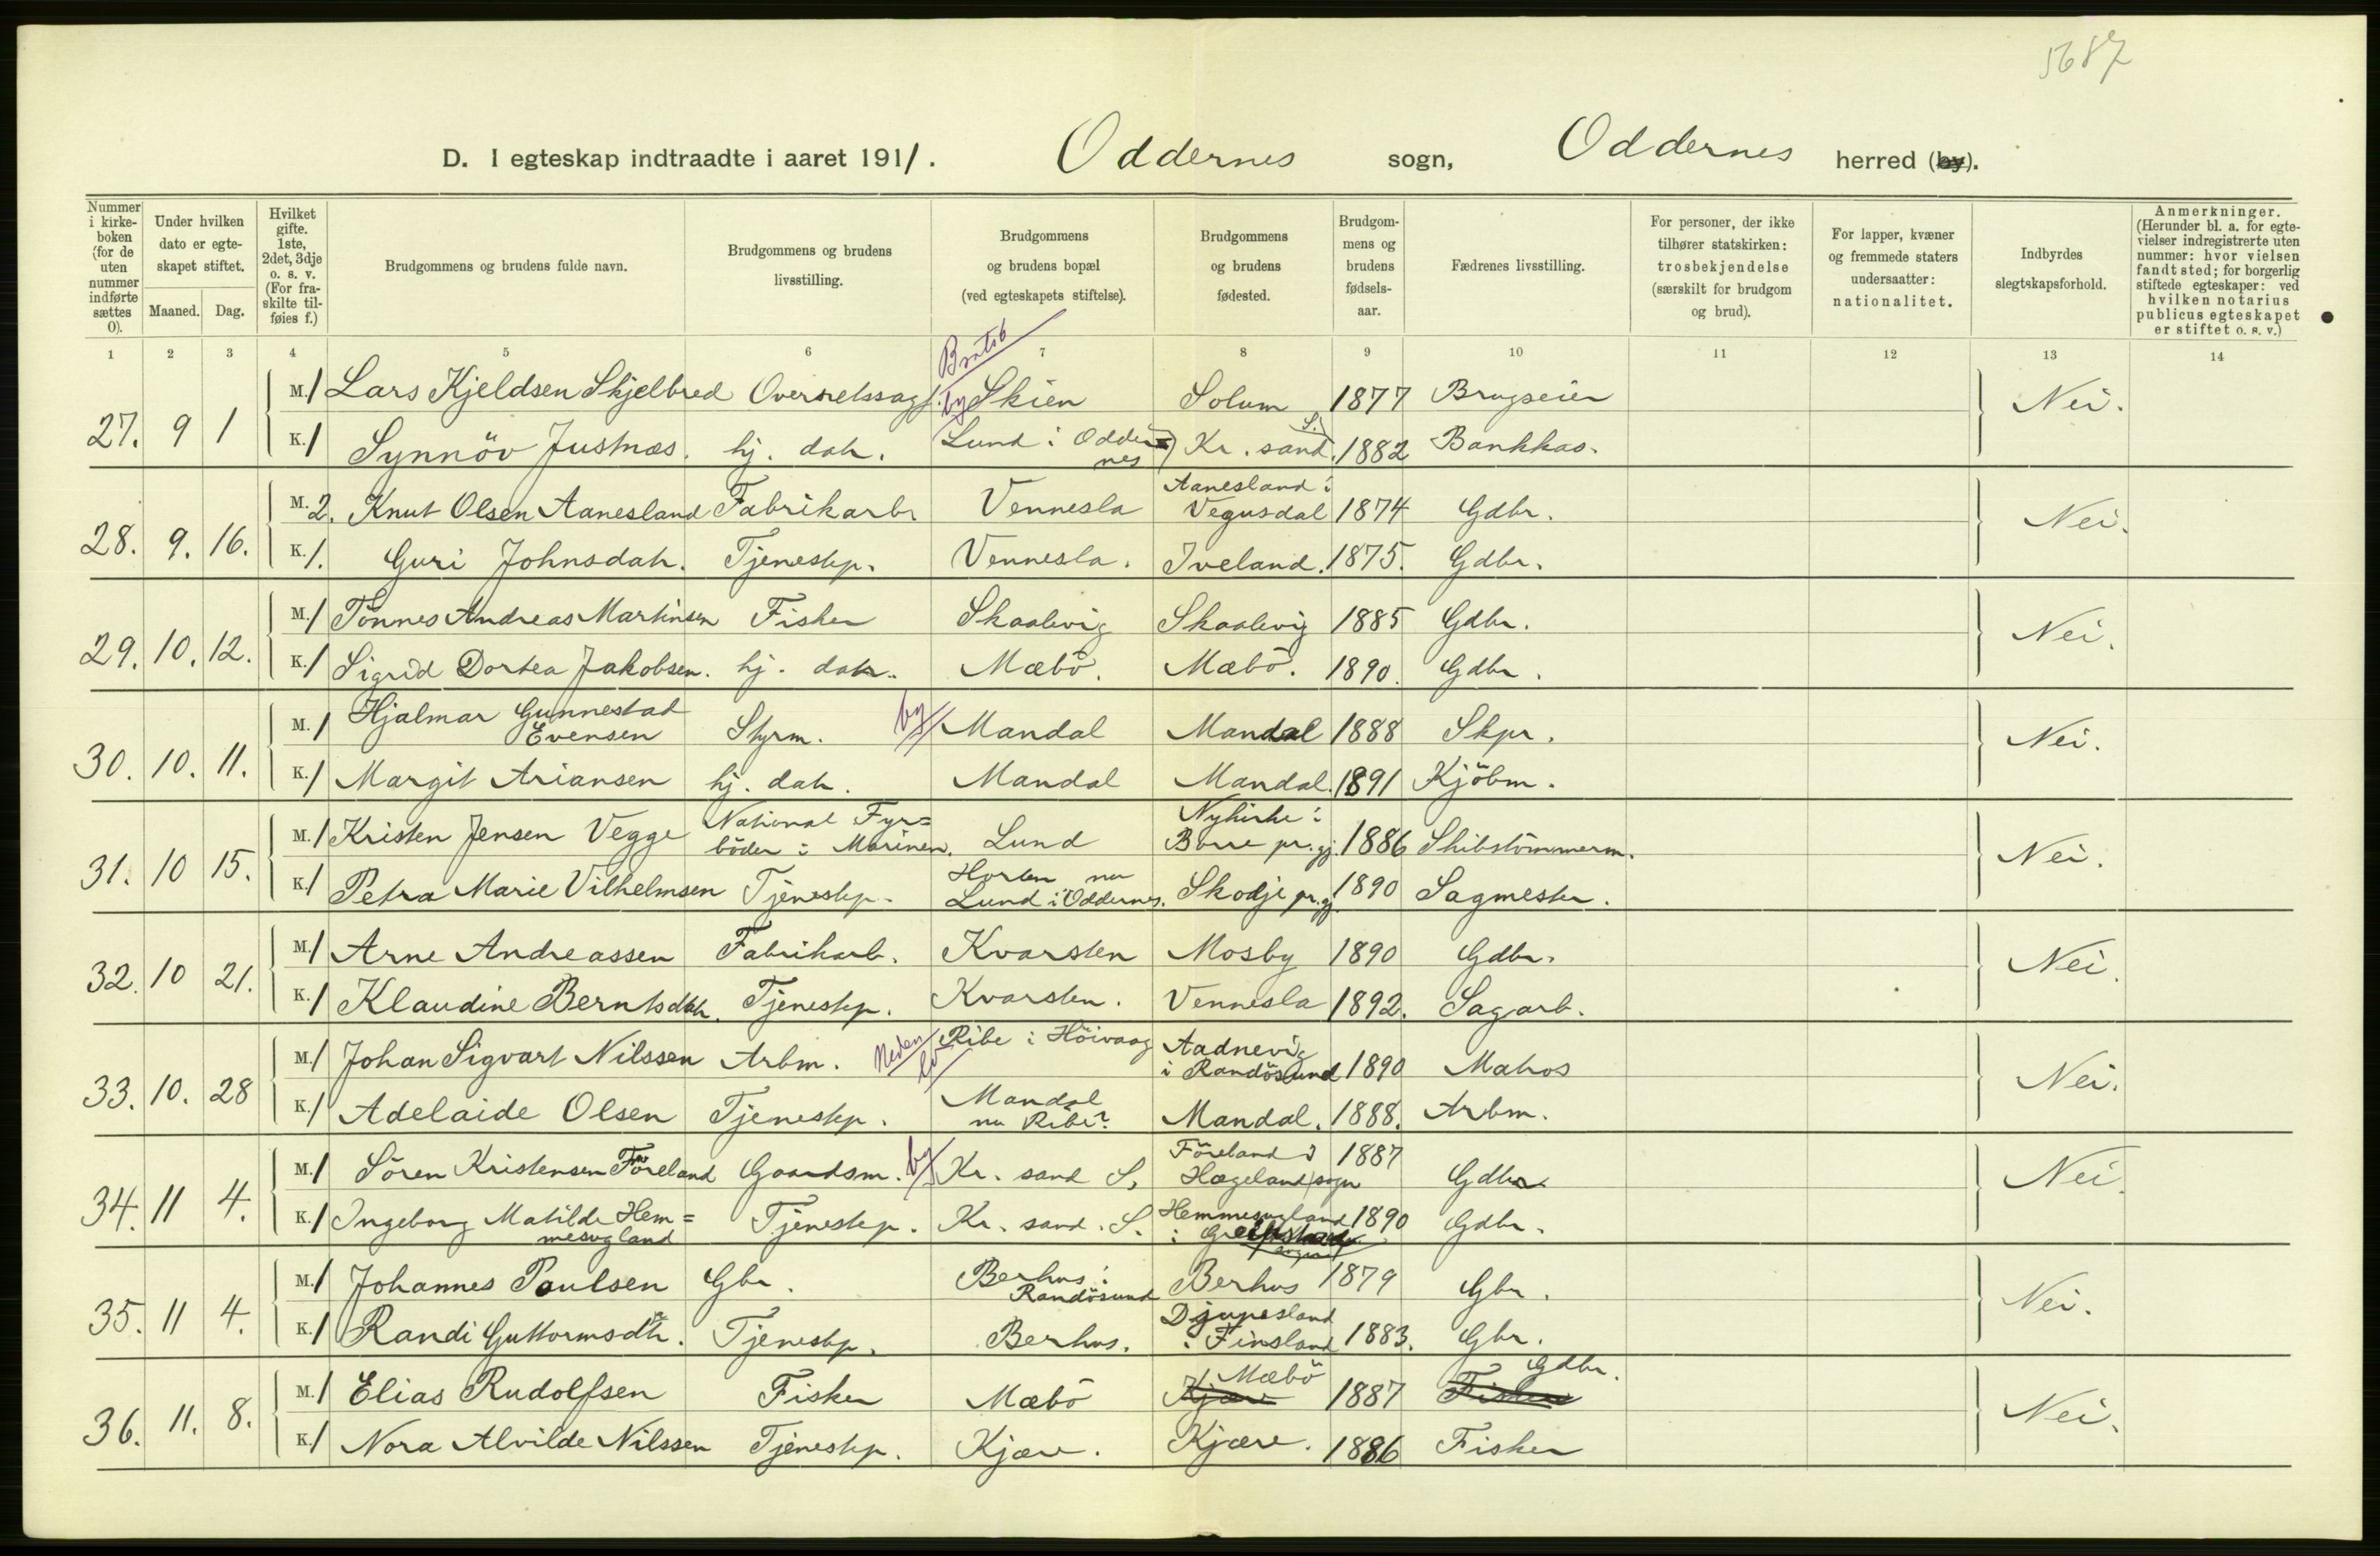 5687
D. I egteskap indtraadte i aaret 1911. Oddernes sogn, Oddernes herred (by).
Nummer i kirke-boken (for de uten nummer indførte sættes 0).
Under hvilken dato er egte-skapet stiftet.
Maaned. Dag.
Hvilket gifte. 1ste, 2det, 3dje o. s. v. (For fra-skilte til-føies f.)
Brudgommens og brudens fulde navn.
Brudgommens og brudens livsstilling.
Brudgommens og brudens bopæl (ved egteskapets stiftelse).
Brudgommens og brudens fødested.
Brudgom-mens og brudens fødsels-aar.
Fædrenes livsstilling.
For personer, der ikke tilhører statskirken: trosbekjendelse (særskilt for brudgom og brud).
For lapper, kvæner og fremmede staters undersaatter: nationalitet.
Indbyrdes slegtskapsforhold.
Anmerkninger. (Herunder bl. a. for egte-vielser indregistrerte uten nummer: hvor vielsen fandt sted; for borgerlig stiftede egteskaper: ved hvilken notarius publicus egteskapet er stiftet o. s. v.)
1 2 3 4 5 6 7 8 9 10 11 12 13 14
27. 9 1 M. 1 Lars Kjeldsen Skjelbred Overretssagf. Bratsb by Skien Solum 1877 Brugseier Nei.
K. 1 Synnöv Justnæs. hj. datr. Lund i Oddernes Kr. sand S. 1882 Bankkas.
28. 9. 16. M. 2. Knut Olsen Aanesland Fabrikarb. Vennesla Aanesland i Vegusdal 1874 Gdbr. Nei.
K. 1. Guri Johnsdatr. Tjenestep. Vennesla. Iveland. 1875. Gdbr.
29. 10. 12. M. 1 Tönnes Andreas Martinsen Fisker Skaalevig Skaalevig 1885 Gdbr. Nei.
K. 1 Sigrid Dortea Jakobsen. hj. datr. Mæbö. Mæbö. 1890. Gdbr.
30. 10. 11. M. 1 Hjalmar Gunnestad Evensen Styrm. by Mandal Mandal 1888 Skpr. Nei.
K. 1 Margit Ariansen hj. datr. Mandal Mandal. 1891 Kjöbm.
31. 10 15. M. 1 Kristen Jensen Vegge National Fyr=böder i Marinen. Lund Nykirke i Borre pr.gj. 1886 Skibstömmerm. Nei.
K. 1 Petra Marie Vilhelmsen Tjenestep. Horten nu Lund i Oddernes. Skodje pr.gj. 1890 Sagmester.
32. 10 21. M. 1 Arne Andreassen Fabrikarb. Kvarsten Mosby 1890 Gdbr. Nei.
K. 1 Klaudine Berntsdatr. Tjenestep. Kvarsten. Vennesla 1892. Sagarb.
33. 10. 28 M. 1 Johan Sigvart Nilssen Arbm. Neden Ribe i Höivaag Aadnevig i Randösund 1890 Matros Nei.
K. 1 Adelaide Olsen Tjenestep. Mandal nu Ribe? Mandal. 1888. Arbm.
34. 11 4. M. 1 Sören Kristensen Föreland Gaardsm. by Kr. sand S. Föreland i Hægeland sogn 1887 Gdbr. Nei.
K. 1 Ingeborg Matilde Hem=mesugland Tjenestep. Kr. sand. S. Hemmesugland i Greipstad sogn 1890 Gdbr.
35. 11 4. M. 1 Johannes Paulsen Gbr. Berhus i Randösund Berhus 1879 Gbr. Nei.
K. 1 Randi Guttormsdtr. Tjenestp. Berhus. Djupesland i Finsland 1883. Gbr.
36. 11. 8. M. 1 Elias Rudolfsen Fisker Mæbö Kjære Mæbö 1887 Fisker Gdbr. Nei.
K. 1 Nora Alvilde Nilssen Tjenestep. Kjære. Kjære. 1886 Fisker